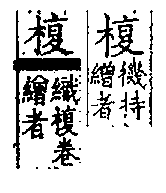 椱
機持
繒者
椱
織椱卷
繒者